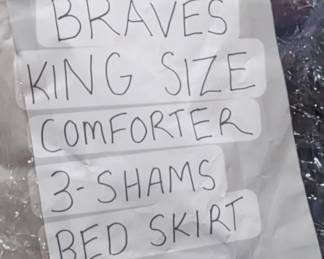 BRAVES
KING SIZE
COMFORTER
3-SHAMS
BED SKIRT